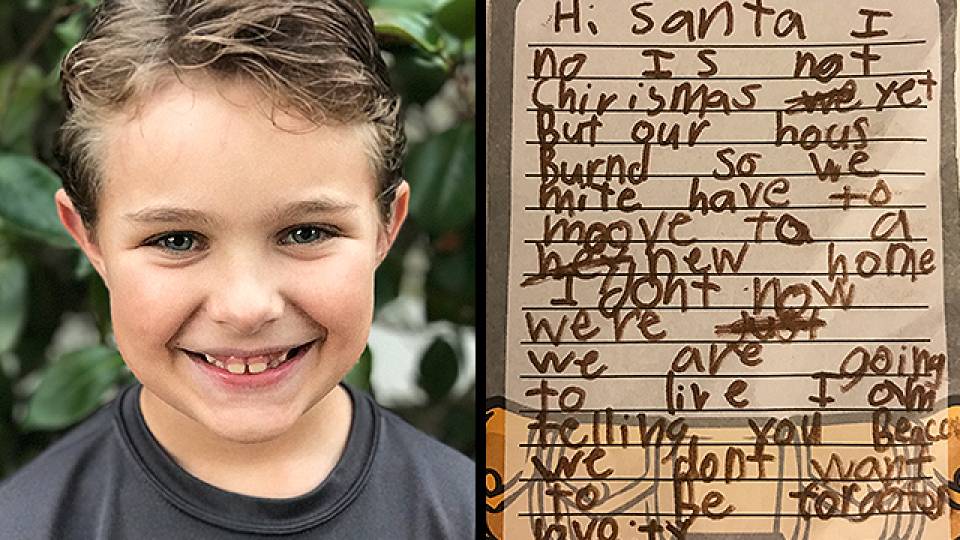 Hi santa I
no Is not
Chirismas yet
But our hous
Burnd so we
mite have to
moove to a
new home
I dont now
were
we are going
to live I am
telling you Beaco
we dont want
to be